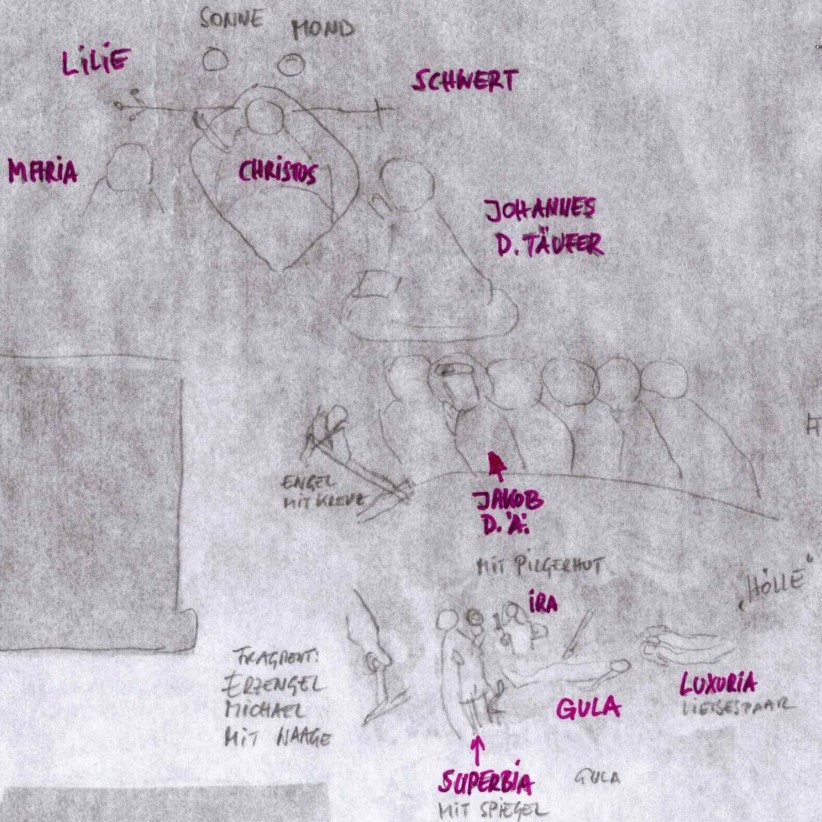 SONNE
MOND
LILIE
SCHWERT
MARIA
CHRISTOS
JOHANNES
D. TÄUFER
ENGEL
MIT KREUZ
JAKOB
D. Ä.
MIT PILGERHUT
„HÖLLE“
IRA
FRAGMENT:
ERZENGEL
MICHAEL
MIT WAAGE
GULA
LUXURIA
LIEBESPAAR
SUPERBIA
GULA
MIT SPIEGEL